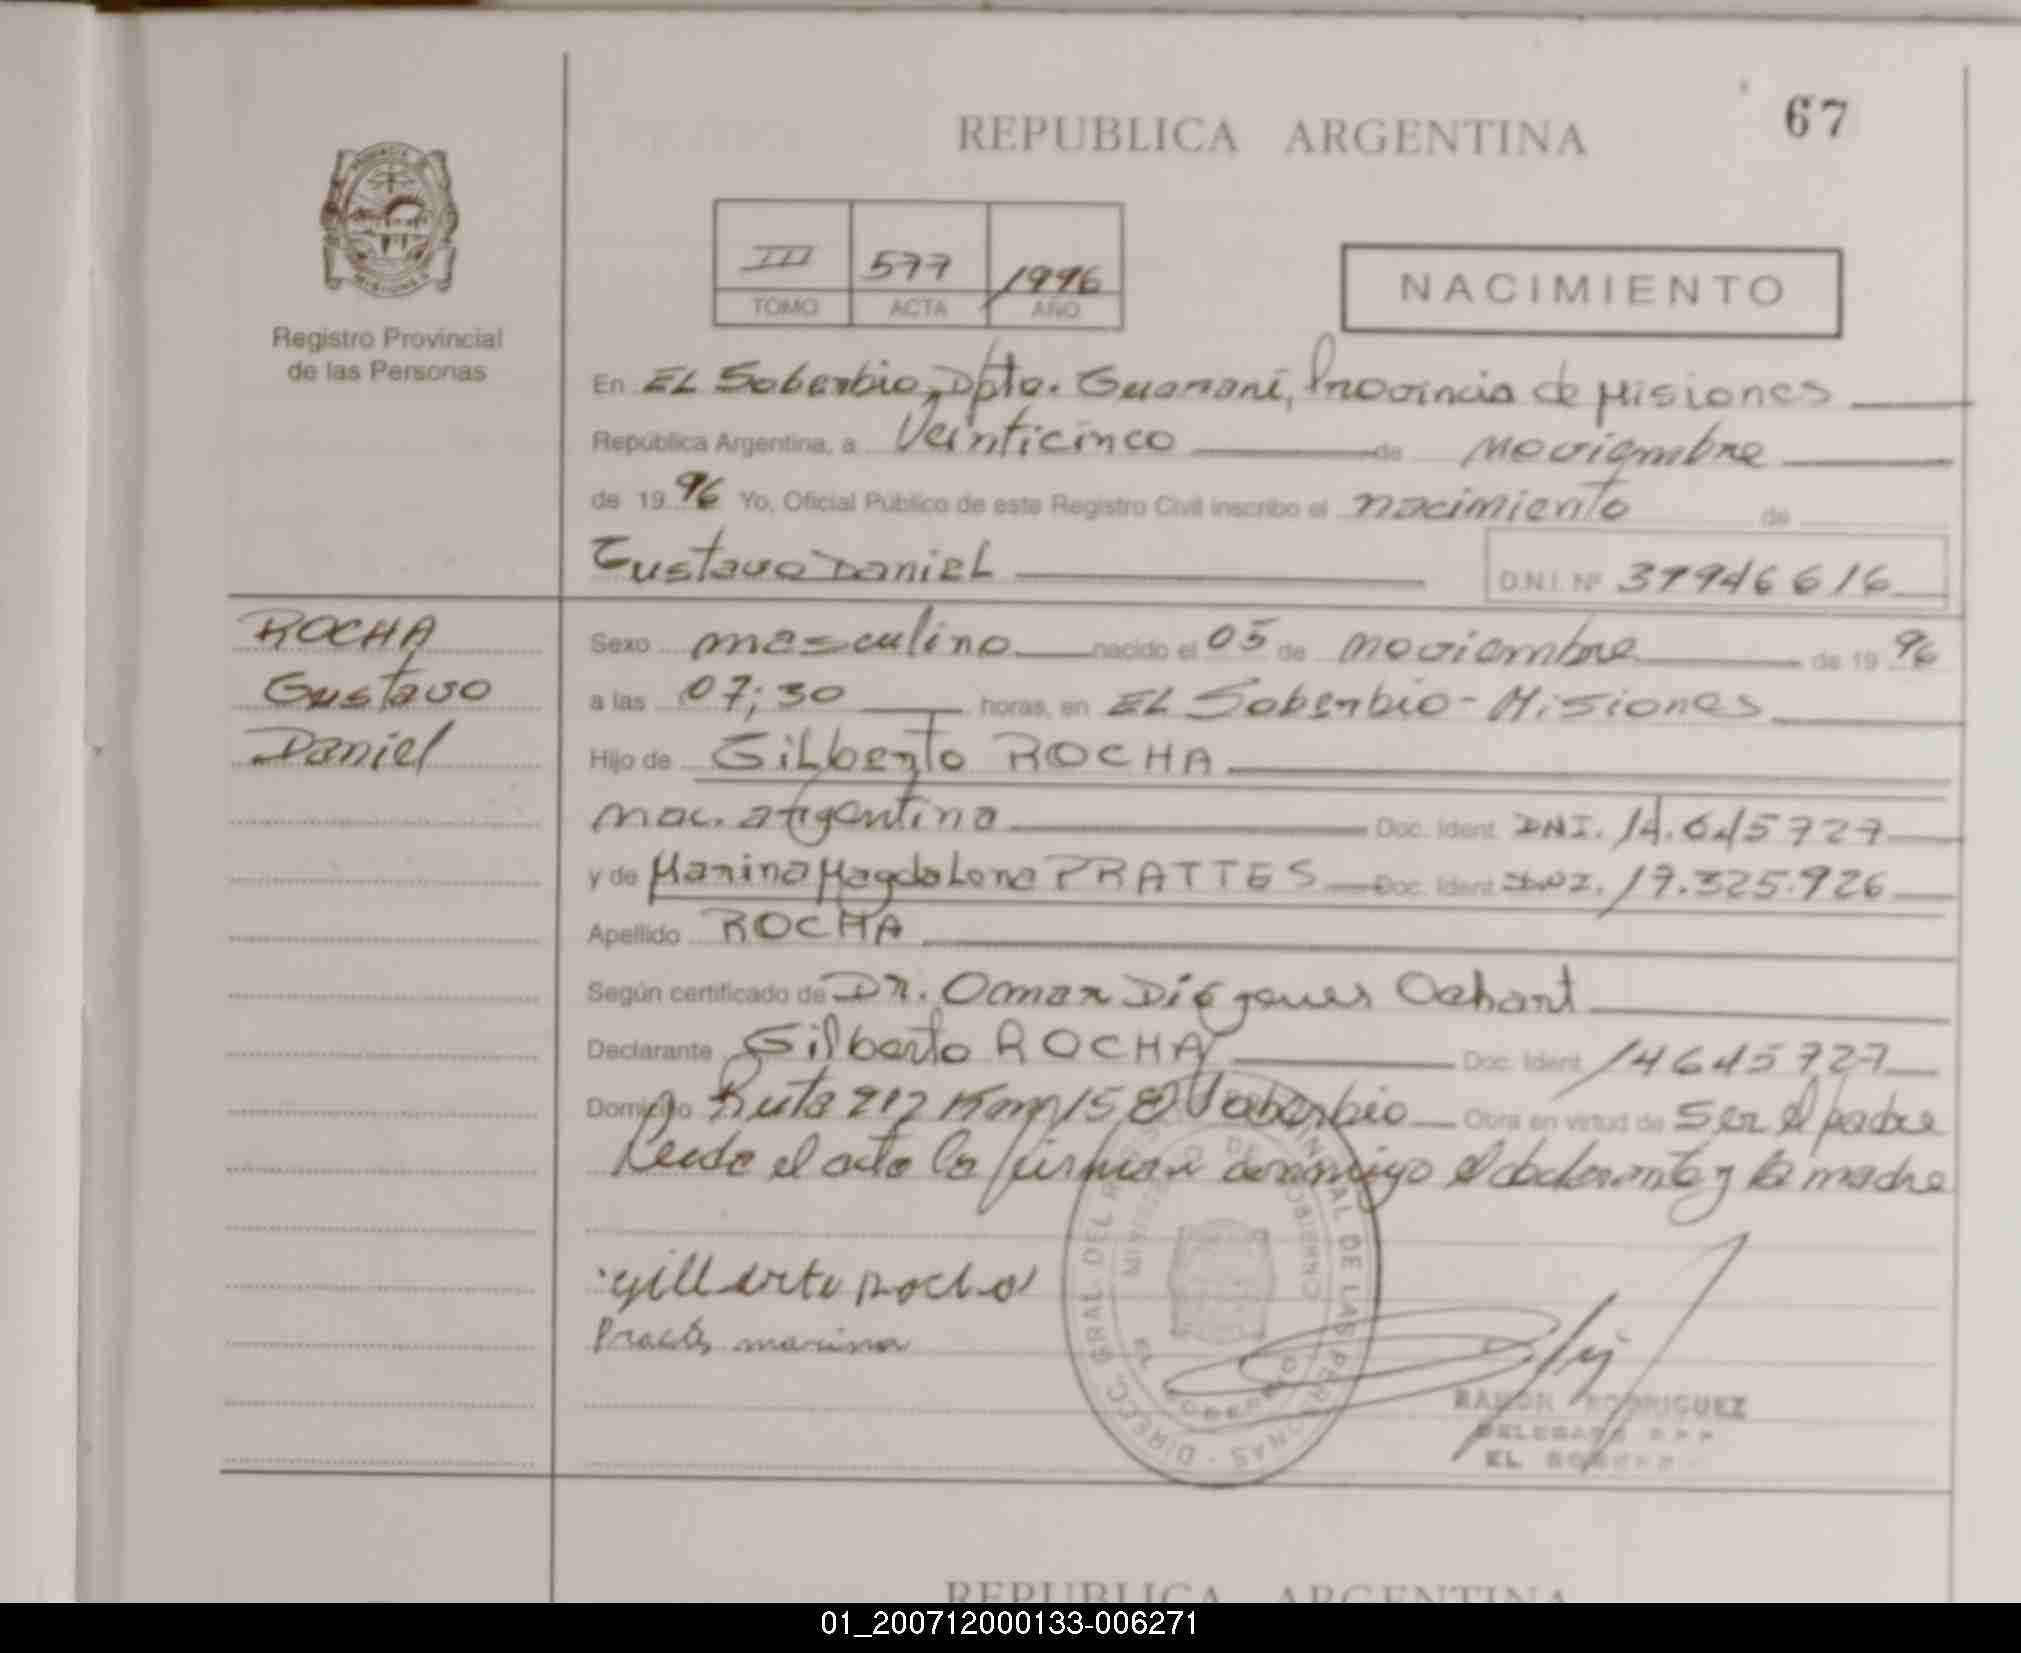 67
REPUBLICA ARGENTINA
III 577 1996
TOMO ACTA AÑO
NACIMIENTO
Registro Provincial
de las Personas
En EL Soberbio, Dpto. Guaraní, Provincia de Misiones
República Argentina, a Veinticinco de noviembre
de 19 96 Yo, Oficial Público de este Registro Civil inscribo el nacimiento de
Gustavo Daniel D.N.I. Nº 39946616
ROCHA
Gustavo
Daniel
Sexo masculino nacido el 05 de noviembre de 19 96
a las 07;30 horas, en EL Soberbio - Misiones
Hijo de Gilberto ROCHA
nac. argentina Doc. Ident. DNI. 14.645727
y de Marina Magdalena PRATTES Doc. Ident. DNI. 17.325.926
Apellido ROCHA
Según certificado de Dr. Omar Diógenes
Declarante Gilberto ROCHA Doc. Ident. 14645727
Domicilio Ruta 212 Km 15 El Soberbio Obra en virtud de Ser el padre
Leida el acta la firman conmigo el declarante y la madre
Gillberto Rocha
marina
DIRECC. GRAL. DEL REGISTRO PROVINCIAL DE LAS PERSONAS
MINISTERIO DE GOBIERNO
EL SOBERBIO
RAMON RODRIGUEZ
DELEGADO R.P.P.
EL SOBERBIO
REPUBLICA ARGENTINA
01_200712000133-006271